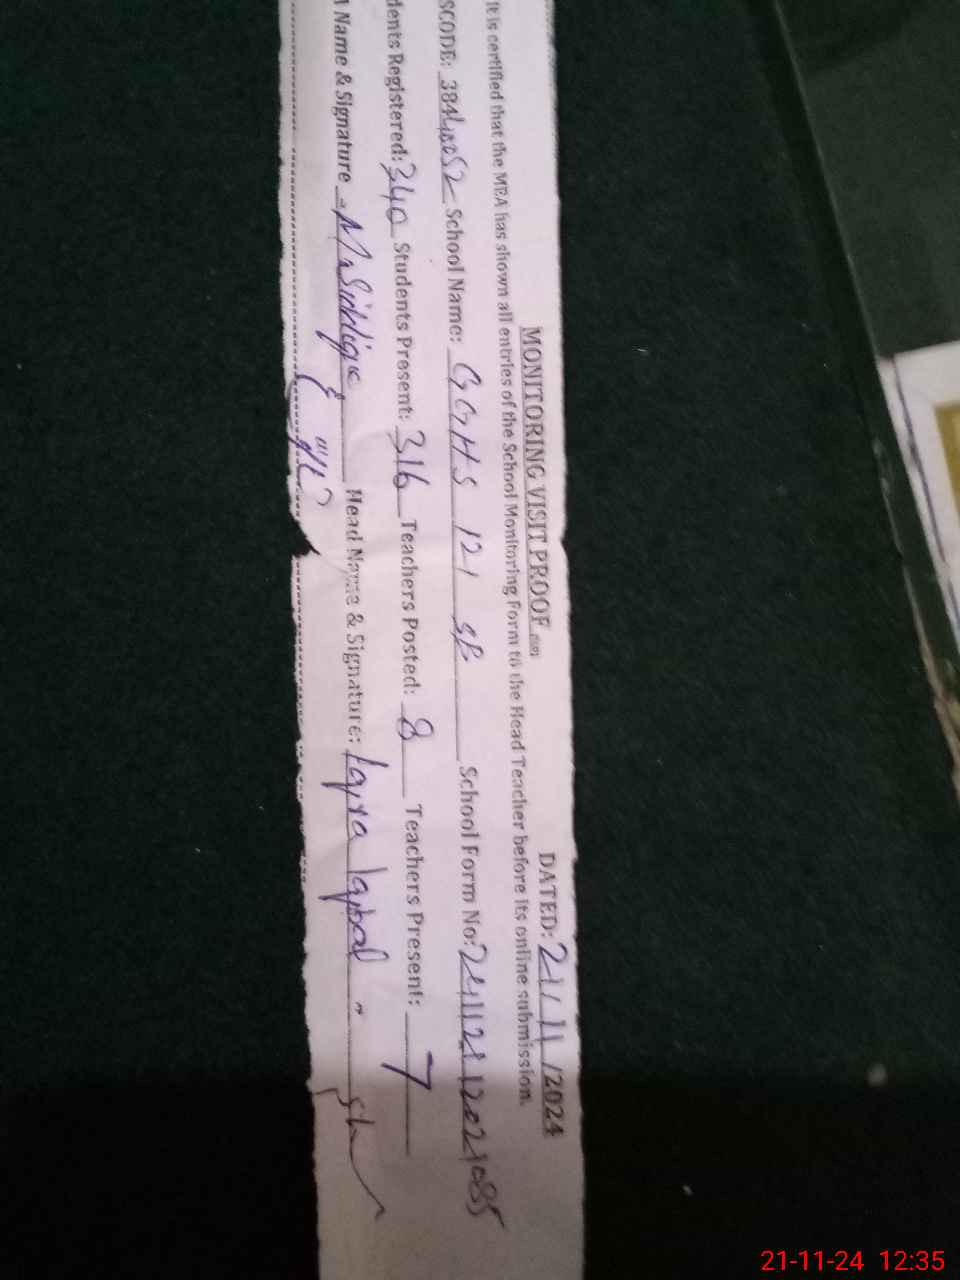 MONITORING VISIT PROOF DATED: 21/11/2024
It is certified that the MEA has shown all entries of the School Monitoring Form to the Head Teacher before its online submission.
SCODE: 38440052 School Name: GGHS 121 SB School Form No: 24112112021085
dents Registered: 340 Students Present: 316 Teachers Posted: 8 Teachers Present: 7
Name & Signature M. Siddique Head Name & Signature: Iqra Iqbal
21-11-24 12:35